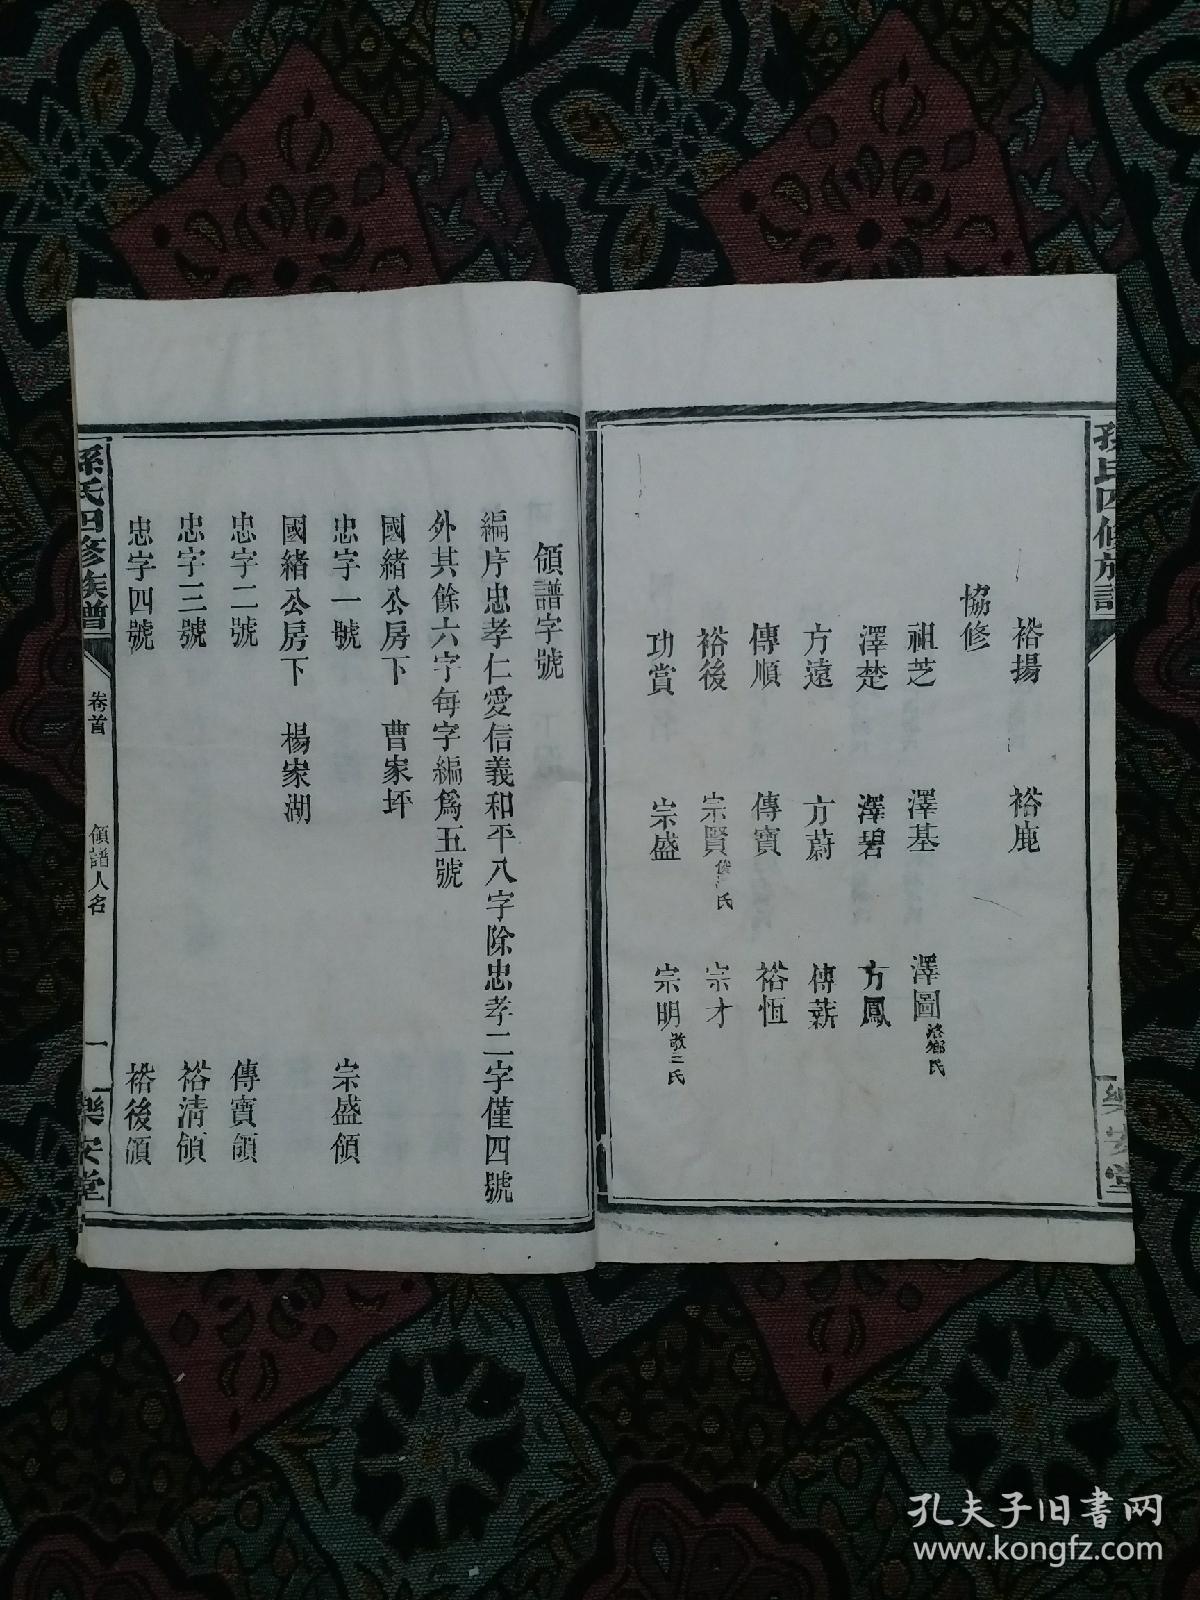 裕揚　裕鹿
協修
祖芝　澤基　澤圖
澤楚　澤碧　方鳳
方遠　方蔚　傳薪
傳順　傳寶　裕恆
裕後　宗賢　宗才
功賞　宗盛　宗明
領譜字號
編序忠孝仁愛信義和平八字除忠孝二字僅四號
外其餘六字每字編爲五號
國緒公房下　曹家坪
忠字一號　宗盛領
國緒公房下　楊家湖
忠字二號　傳寶領
忠字三號　裕清領
忠字四號　裕後領
孫氏四修族譜　卷首　領譜人名　一　樂安堂
孔夫子旧书网
www.kongfz.com